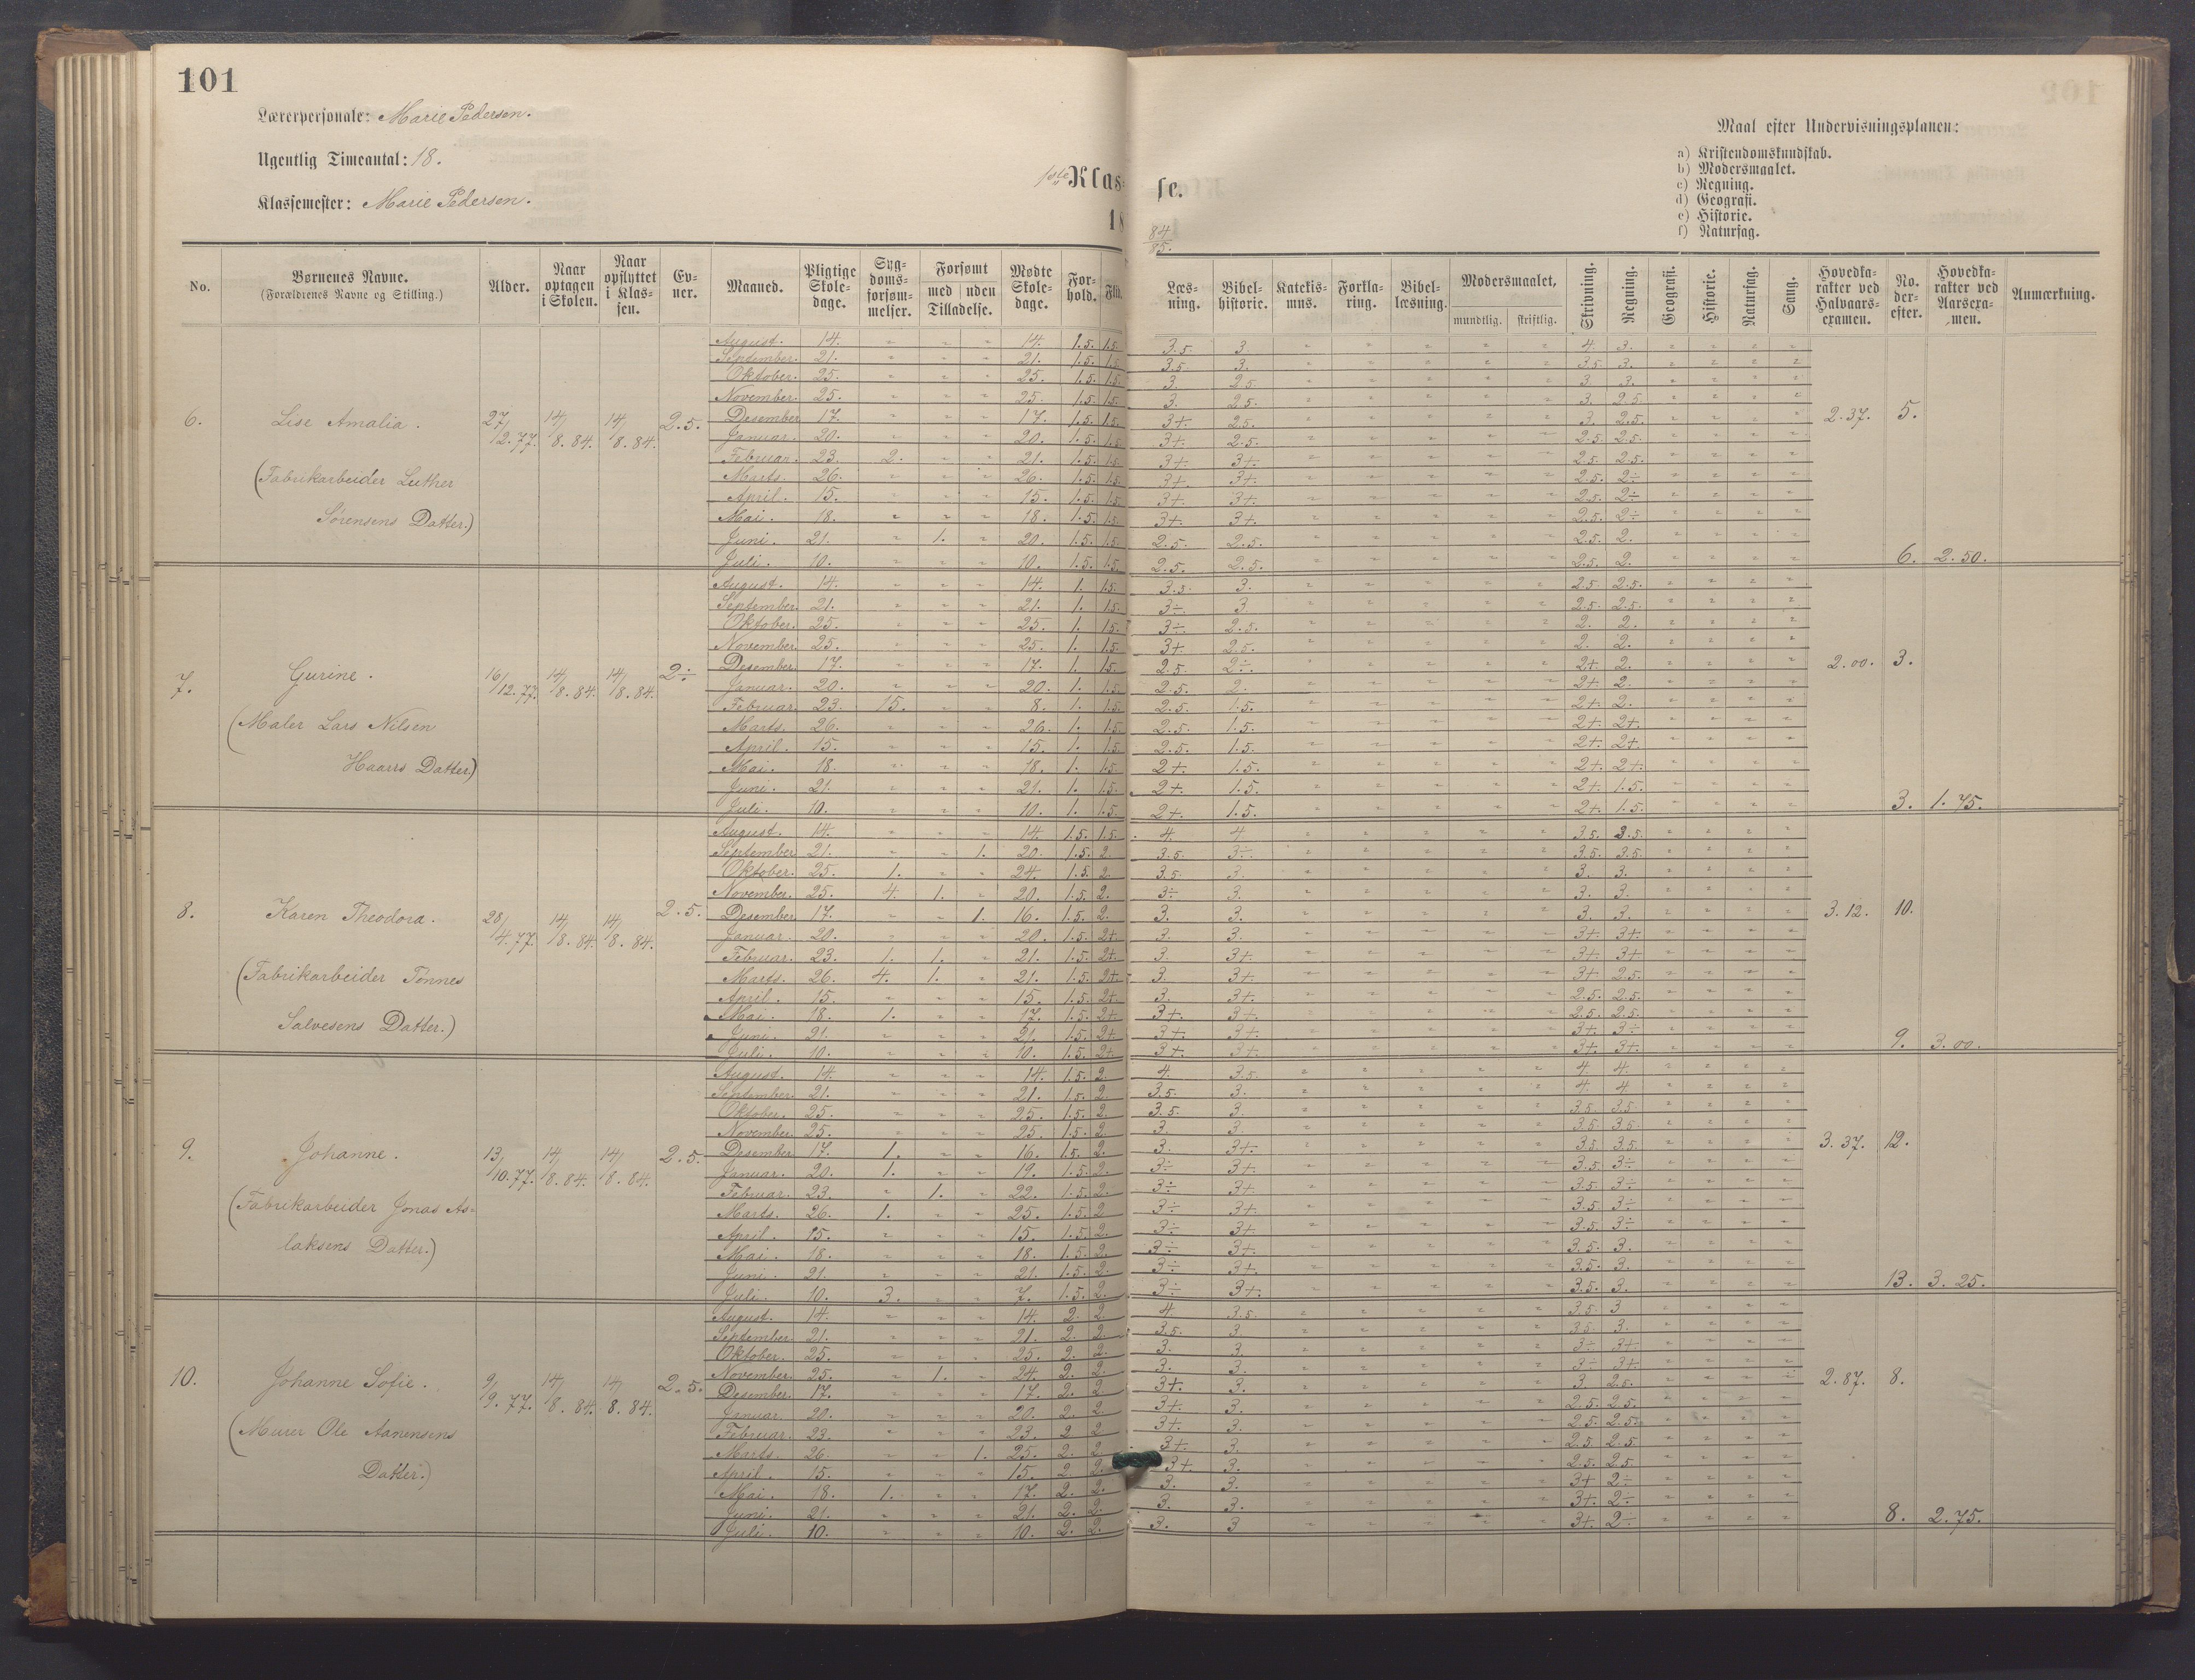 101
Lærerpersonale: Marie Pedersen.
Ugentlig Timeantal: 18.
Klassemester: Marie Pedersen.
1ste Klasse.
18 84/85.
Maal efter Undervisningsplanen:
a) Kristendomskundskab.
b) Modersmaalet.
c) Regning.
d) Geografi.
e) Historie.
f) Naturfag.
No. Børnenes Navne. (Forældrenes Navne og Stilling.) Alder. Naar optagen i Skolen. Naar opflyttet i Klassen. Evner. Maaned. Pligtige Skoledage. Sygdomsforsømmelser. Forsømt med uden Tilladelse. Mødte Skoledage. Forhold. Flid. Læsning. Bibelhistorie. Katekismus. Forklaring. Bibellæsning. Modersmaalet, mundtlig. skriftlig. Skrivning. Regning. Geografi. Historie. Naturfag. Sang. Hovedkarakter ved Halvaarsexamen. No. derefter. Hovedkarakter ved Aarsexamen. Anmærkning.
August. 14. " " " 14. 1.5. 1.5. 3.5. 3. " " " " " 4. 3. " " " "
September. 21. " " " 21. 1.5. 1.5. 3.5. 3. " " " " " 3.5. 3. " " " "
Oktober. 25. " " " 25. 1.5. 1.5. 3. 2.5. " " " " " 3. 3. " " " "
November. 25. " " " 25. 1.5. 1.5. 3. 2.5. " " " " " 3. 2.5. " " " "
6. Lise Amalia. 27/12.77. 14/8.84. 14/8.84. 2.5. Desember 17. " " " 17. 1.5. 1.5. 3+. 2.5. " " " " " 3. 2.5. " " " " 2.37. 5.
Januar. 20. " " " 20. 1.5. 1.5. 3+. 2.5. " " " " " 2.5. 2.5. " " " "
Februar. 23. 2. " " 21. 1.5. 1.5. 3+. 3+. " " " " " 2.5. 2.5. " " " "
(Fabrikarbeider Luther Marts. 26. " " " 26. 1.5. 1.5. 3+. 3+. " " " " " 2.5. 2÷ " " " "
April. 15. " " " 15. 1.5. 1.5. 3+. 3+. " " " " " 2.5. 2÷ " " " "
Sørensens Datter.) Mai. 18. " " " 18. 1.5. 1.5. 3+. 3+. " " " " " 2.5. 2÷ " " " "
Juni. 21. " 1. " 20. 1.5. 1.5. 2.5. 2.5. " " " " " 2.5. 2. " " " "
Juli. 10. " " " 10. 1.5. 1.5. 2.5. 2.5. " " " " " 2.5. 2. " " " " 6. 2.50.
August. 14. " " " 14. 1. 1.5. 3.5. 3. " " " " " 2.5. 2.5. " " " "
September. 21. " " " 21. 1. 1.5. 3÷. 3 " " " " " 2.5. 2.5. " " " "
Oktober. 25. " " " 25. 1. 1.5. 3÷. 2.5. " " " " " 2. 2. " " " "
November. 25. " " " 25. 1. 1.5. 3+ 2.5. " " " " " 2. 2. " " " "
7. Gurine. 16/12.77. 14/8.84. 14/8.84. 2÷ Desember. 17. " " " 17. 1. 1.5. 2.5. 2÷. " " " " " 2+ 2. " " " " 2.00. 3.
Januar. 20. " " " 20. 1. 1.5. 2.5. 2. " " " " " 2+ 2. " " " "
Februar. 23. 15. " " 8. 1. 1.5. 2.5. 1.5. " " " " " 2+ 2. " " " "
(Maler Lars Nilsen Marts. 26. " " " 26. 1. 1.5. 2.5. 1.5. " " " " " 2+. 2+. " " " "
April. 15. " " " 15. 1. 1.5. 2.5. 1.5. " " " " " 2+. 2+. " " " "
Haarrs Datter) Mai. 18. " " " 18. 1. 1.5. 2+. 1.5. " " " " " 2+. 2+. " " " "
Juni. 21. " " " 21. 1. 1.5. 2+. 1.5. " " " " " 2+. 1.5. " " " "
Juli. 10. " " " 10. 1. 1.5. 2+ 1.5. " " " " " 2+. 1.5. " " " " 3. 1.75.
August. 14. " " " 14. 1.5. 1.5. 4. 4. " " " " " 3.5. 3.5. " " " "
September 21. " " 1. 20. 1.5. 2. 3.5. 3÷. " " " " " 3.5. 3.5. " " " "
Oktober. 25. 1. " " 24. 1.5. 2. 3.5. 3. " " " " " 3. 3. " " " "
November. 25. 4. 1. " 20. 1.5. 2. 3÷ 3. " " " " " 3. 3. " " " "
8. Karen Theodora. 28/4.77. 14/8.84. 14/8.84. 2.5. Desember 17. " " 1. 16. 1.5. 2. 3. 3. " " " " " 3. 3. " " " " 3.12. 10.
Januar. 20. " " " 20. 1.5. 2+. 3. 3. " " " " " 3+ 3+. " " " "
Februar. 23. 1. 1. " 21. 1.5. 2+. 3. 3+. " " " " " 3+. 3+ " " " "
(Fabrikarbeider Tønnes Marts. 26. 4. 1. " 21. 1.5. 2+. 3. 3+. " " " " " 3+ 2.5. " " " "
April. 15. " " " 15. 1.5. 2+. 3. 3+. " " " " " 2.5. 2.5. " " " "
Salvesens Datter.) Mai. 18. 1. " " 17. 1.5. 2+. 3+. 3+. " " " " " 2.5. 2.5. " " " "
Juni. 21. " " " 21. 1.5. 2+ 3+. 3+. " " " " " 3+. 3÷ " " " "
Juli. 10. " " " 10. 1.5. 2+. 3+. 3+. " " " " " 3+. 3+. " " " " 9. 3.00.
August. 14. " " " 14. 1.5. 2. 4. 3.5. " " " " " 4. 4. " " " "
September. 21. " " " 21. 1.5. 2. 3.5. 3. " " " " " 4. 4. " " " "
Oktober. 25. " " " 25. 1.5. 2. 3.5. 3. " " " " " 3.5. 3.5. " " " "
November. 25. " " " 25. 1.5. 2. 3. 3. " " " " " 3.5. 3.5. " " " "
9. Johanne. 13/10.77. 14/8.84. 14/8.84. 2.5. Desember 17. 1. " " 16. 1.5. 2. 3. 3+. " " " " " 3.5. 3.5. " " " " 3.37. 12.
Januar. 20. 1. " " 19. 1.5. 2. 3÷ 3+. " " " " " 3.5. 3÷ " " " "
Februar. 23. " 1. " 22. 1.5. 2. 3÷ 3+. " " " " " 3.5. 3÷ " " " "
(Fabrikarbeider Jonas As- Marts. 26. 1. " " 25. 1.5. 2 3÷ 3+. " " " " " 3.5. 3÷ " " " "
April. 15. " " " 15. 1.5. 2. 3÷ 3+. " " " " " 3.5. 3÷ " " " "
laksens Datter.) Mai. 18. " " " 18. 1.5. 2. 3÷ 3+. " " " " " 3.5. 3. " " " "
Juni. 21. " " " 21. 1.5. 2. 3÷ 3+. " " " " " 3.5. 3. " " " "
Juli. 10. 3. " " 7. 1.5. 2. 3÷ 3+. " " " " " 3.5. 3. " " " " 13. 3.25.
August. 14. " " " 14. 2. 2. 4 3.5. " " " " " 3.5. 3 " " " "
September. 21. " " " 21. 2. 2. 3.5. 3. " " " " " 3.5. 3. " " " "
Oktober. 25. " " " 25. 2. 2. 3. 3. " " " " " 3÷ 3+ " " " "
November. 25. " 1. " 24. 2. 2. 3. 3. " " " " " 3÷ 3+. " " " "
10. Johanne Sofie. 9/9.77. 14/8.84. 14/8.84. 2.5. Desember. 17. " " " 17. 2. 2. 3+. 3. " " " " " 3 2.5. " " " " 2.87. 8.
Januar. 20. " " " 20. 2. 2. 3+. 3. " " " " " 2.5. 2.5. " " " "
Februar. 23. " " " 23. 2 2 3+. 3. " " " " " 2.5. 2.5. " " " "
(Murer Ole Aanensens Marts. 26. " " 1. 25. 2. 2. 3+. 3. " " " " " 2.5. 2.5. " " " "
April. 15. " " " 15. 2. 2. 3+. 3. " " " " " 2.5. 2.5. " " " "
Datter.) Mai. 18. 1. " " 17. 2. 2. 3. 3. " " " " " 3+ 2÷ " " " "
Juni. 21. " " " 21. 2. 2. 3. 3. " " " " " 3+. 2÷ " " " "
Juli. 10. " " " 10. 2. 2. 3. 3 " " " " " 3+. 2÷ " " " " 8. 2.75.